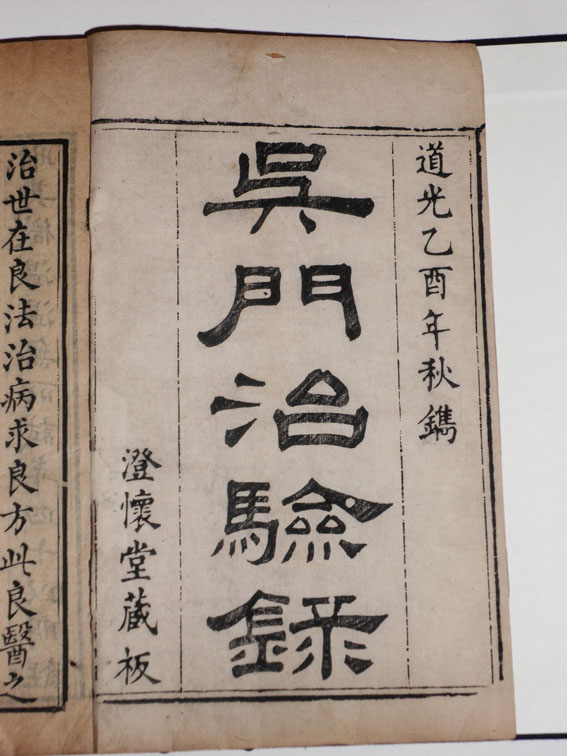 道光乙酉年秋鐫
吳門治驗錄
澄懷堂蔵板
治世在良法治病求良方此良醫之